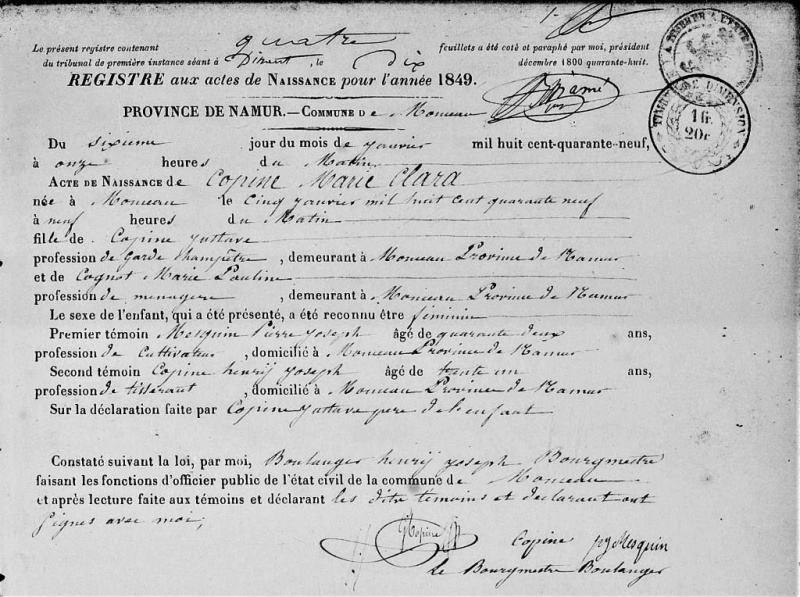 Le présent registre contenant quatre feuillets a été coté et paraphé par moi, président
du tribunal de première instance séant à Dinant, le dix décembre 1800 quarante-huit.
REGISTRE aux actes de NAISSANCE pour l'année 1849.
PROVINCE DE NAMUR.—COMMUNE De Monceau
TIMBRE DE DIMENSION
1 fr.
20 c.
Du sixieme jour du mois de janvier mil huit cent-quarante-neuf,
à onze heures du Matin
ACTE DE NAISSANCE de Copine Marie Clara
née à Monceau le cinq janvier mil huit cent quarante neuf
à neuf heures du Matin
fille de Copine justave
profession de garde champêtre, demeurant à Monceau Province de Namur
et de Cognot Marie Pauline
profession de menagere, demeurant à Monceau Province de Namur
Le sexe de l'enfant, qui a été présenté, a été reconnu être féminin
Premier témoin Mesquin Pierre Joseph âgé de quarante deux ans,
profession de cultivateur, domicilié à Monceau Province de Namur
Second témoin Copine henrij joseph âgé de trente un ans,
profession de tisserant, domicilié à Monceau Province de Namur
Sur la déclaration faite par Copine justave pere de l'enfant
Constaté suivant la loi, par moi, Boulanger henrij joseph Bourgmestre
faisant les fonctions d'officier public de l'état civil de la commune de Monceau
et après lecture faite aux témoins et déclarant les dits temoins et declarant ont
signes avec moi,
Copine Copine pj Mesquin
Le Bourgmestre Boulanger